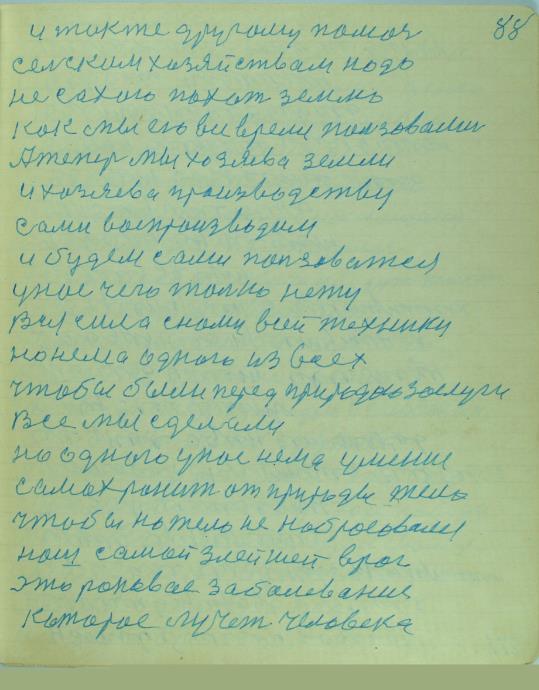 88
и также другому помоч
селским хозяйствам подо
не сахого похат землю
как мы его ви время ползовали
Атепер мы хозяева земли
и хозяева производству
сами воспроизводим
и будем сами ползоватся
унас чего толко нету
вся сила снами всей техники
нонема одного из всех
чтобы были перед природаю заслуги
все мы сделали
но одного унас нема умение
самохронит от природы тело
чтобы натело не набросовали
наш самой злейшей враг
это роковае заболевание
каторае мучет человека